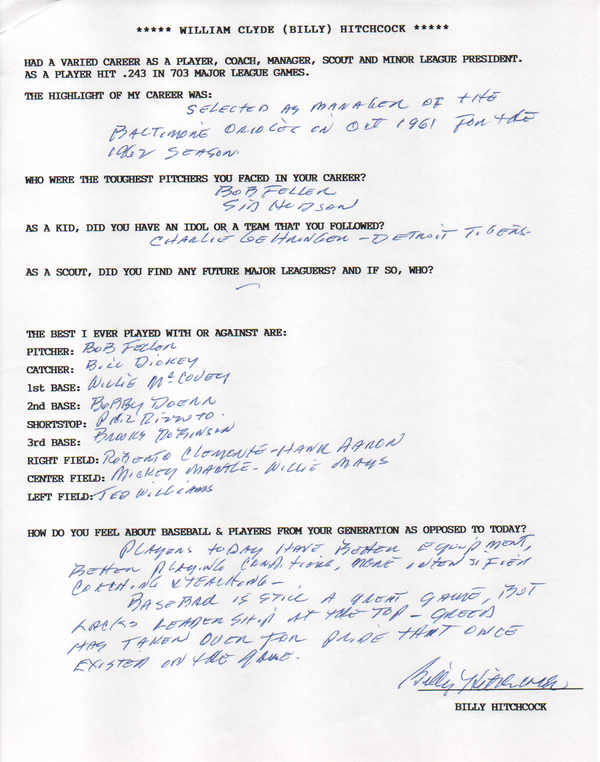 ***** WILLIAM CLYDE (BILLY) HITCHCOCK *****
HAD A VARIED CAREER AS A PLAYER, COACH, MANAGER, SCOUT AND MINOR LEAGUE PRESIDENT.
AS A PLAYER HIT .243 IN 703 MAJOR LEAGUE GAMES.
THE HIGHLIGHT OF MY CAREER WAS:
SELECTED AS MANAGER OF THE
BALTIMORE ORIOLES IN OCT 1961 FOR THE
1962 SEASON.
WHO WERE THE TOUGHEST PITCHERS YOU FACED IN YOUR CAREER?
BOB FELLER
SID HUDSON
AS A KID, DID YOU HAVE AN IDOL OR A TEAM THAT YOU FOLLOWED?
CHARLIE GEHRINGER - DETROIT TIGERS-
AS A SCOUT, DID YOU FIND ANY FUTURE MAJOR LEAGUERS? AND IF SO, WHO?
THE BEST I EVER PLAYED WITH OR AGAINST ARE:
PITCHER: BOB FELLER
CATCHER: BILL DICKEY
1st BASE: WILLIE McCOVEY
2nd BASE: BOBBY DOERR
SHORTSTOP: PHIL RIZZUTO.
3rd BASE: BROOKS ROBINSON
RIGHT FIELD: ROBERTO CLEMENTE - HANK AARON
CENTER FIELD: MICKEY MANTLE - WILLIE MAYS
LEFT FIELD: TED WILLIAMS
HOW DO YOU FEEL ABOUT BASEBALL & PLAYERS FROM YOUR GENERATION AS OPPOSED TO TODAY?
PLAYERS TODAY HAVE BETTER EQUIPMENT,
BETTER PLAYING CONDITIONS, MORE INTENSIFIED
COACHING & TEACHING -
BASEBALL IS STILL A GREAT GAME, BUT
LACKS LEADERSHIP AT THE TOP - GREED
HAS TAKEN OVER FOR PRIDE THAT ONCE
EXISTED IN THE GAME.
Billy Hitchcock
BILLY HITCHCOCK